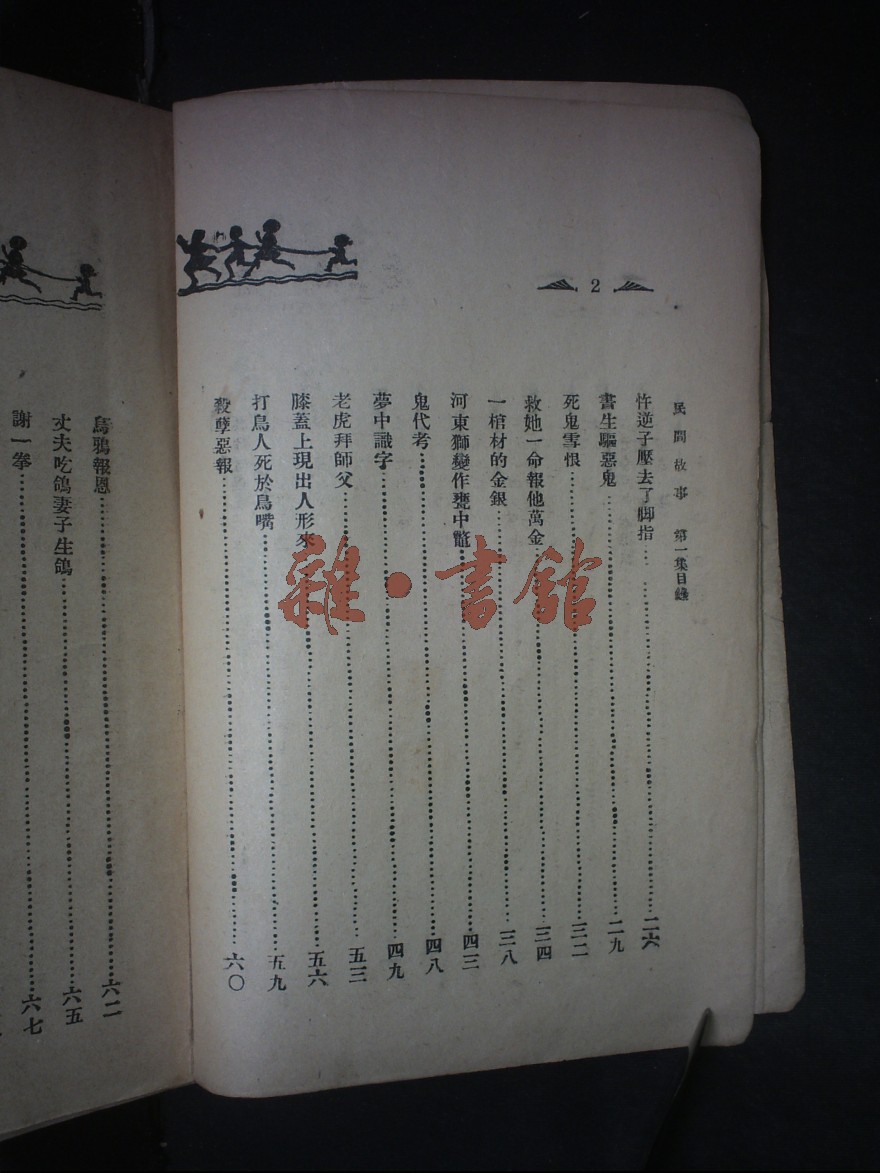 2
民間故事　第一集目錄
忤逆子壓去了脚指……二六
書生驅惡鬼……二九
死鬼雪恨……三二
救她一命報他萬金……三四
一棺材的金銀……三八
河東獅變作甕中鼈……四三
鬼代考……四八
夢中識字……四九
老虎拜師父……五三
膝蓋上現出人形來……五六
打鳥人死於鳥嘴……五九
殺孽惡報……六〇
烏鴉報恩……六二
丈夫吃鴿妻子生鴿……六五
謝一拳……六七
雜·書館